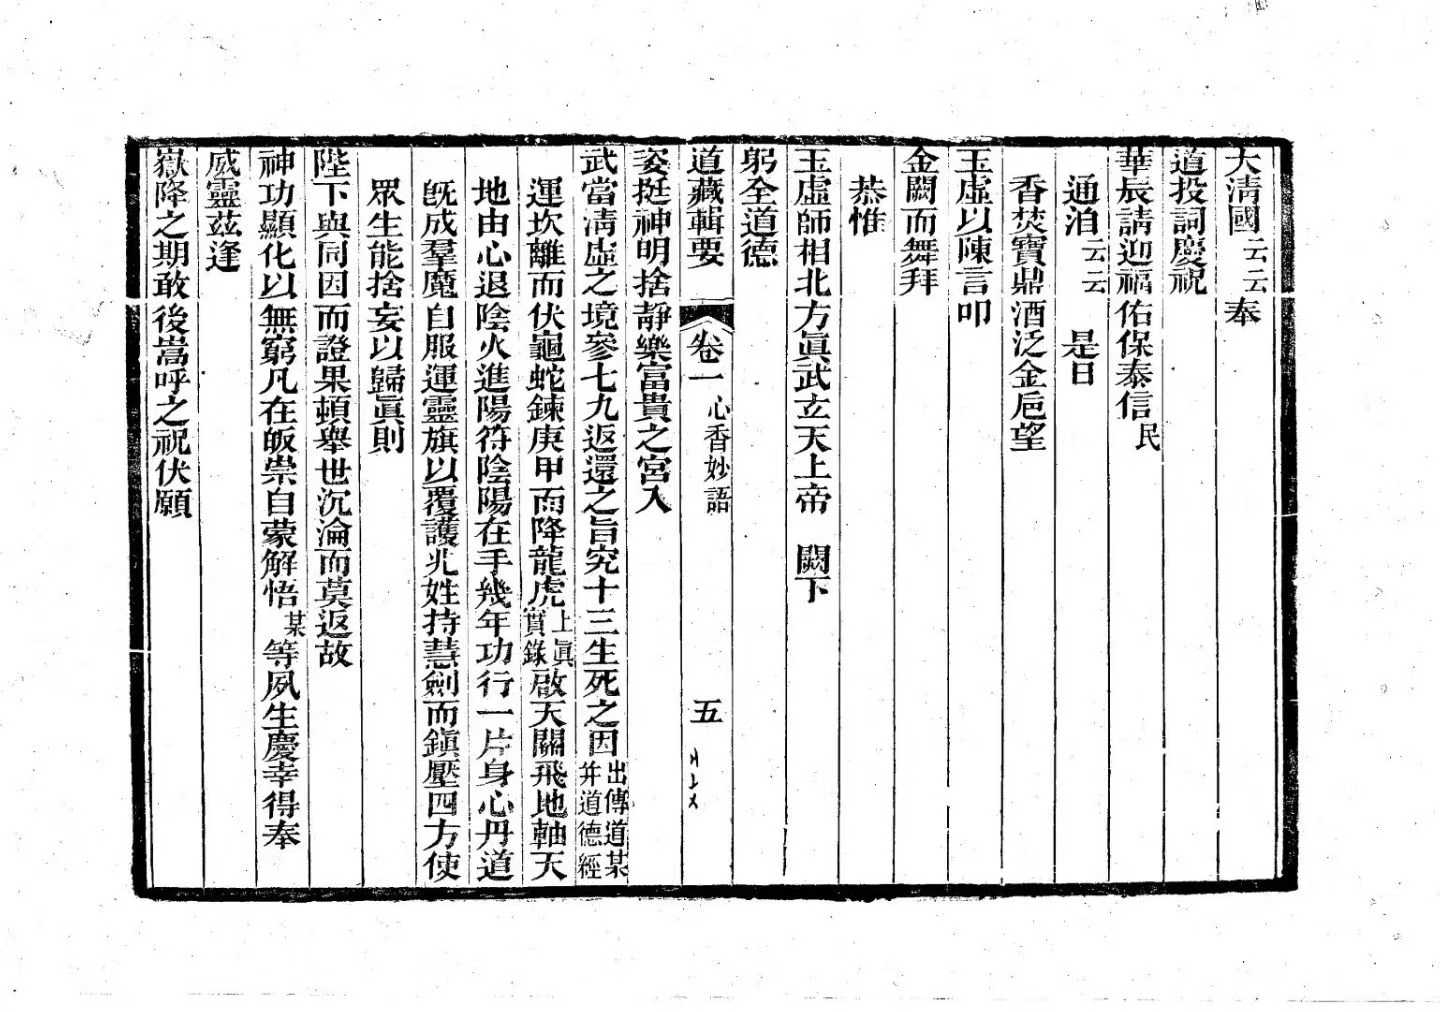 大淸國云云奉
道投詞慶祝
華辰請迎福佑保泰信民
通洎云云 是日
香焚寶鼎酒泛金卮望
玉虛以陳言叩
金闕而舞拜
恭惟
玉虛師相北方眞武玄天上帝 闕下
躬全道德
道藏輯要 卷一 心香妙語 五
姿挺神明捨靜樂富貴之宮入
武當淸虛之境參七九返還之旨究十三生死之因出傳道某幷道德經
運坎離而伏龜蛇鍊庚甲而降龍虎上眞實錄啟天關飛地軸天
地由心退陰火進陽符陰陽在手幾年功行一片身心丹道
旣成羣魔自服運靈旗以覆護兆姓持慧劍而鎭壓四方使
眾生能捨妄以歸眞則
陛下與同因而證果頓舉世沉淪而莫返故
神功顯化以無窮凡在皈崇自蒙解悟某等夙生慶幸得奉
威靈茲逢
嶽降之期敢後嵩呼之祝伏願